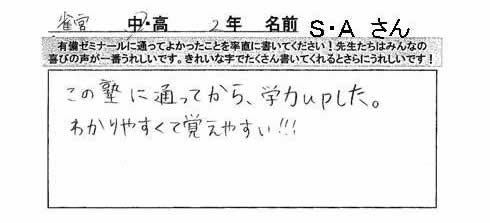 雀宮 中・高 2年 名前 S・A さん
有備ゼミナールに通ってよかったことを率直に書いてください！先生たちはみんなの
喜びの声が一番うれしいです。きれいな字でたくさん書いてくれるとさらにうれしいです！
この塾に通ってから、学力upした。
わかりやすくて覚えやすい!!!